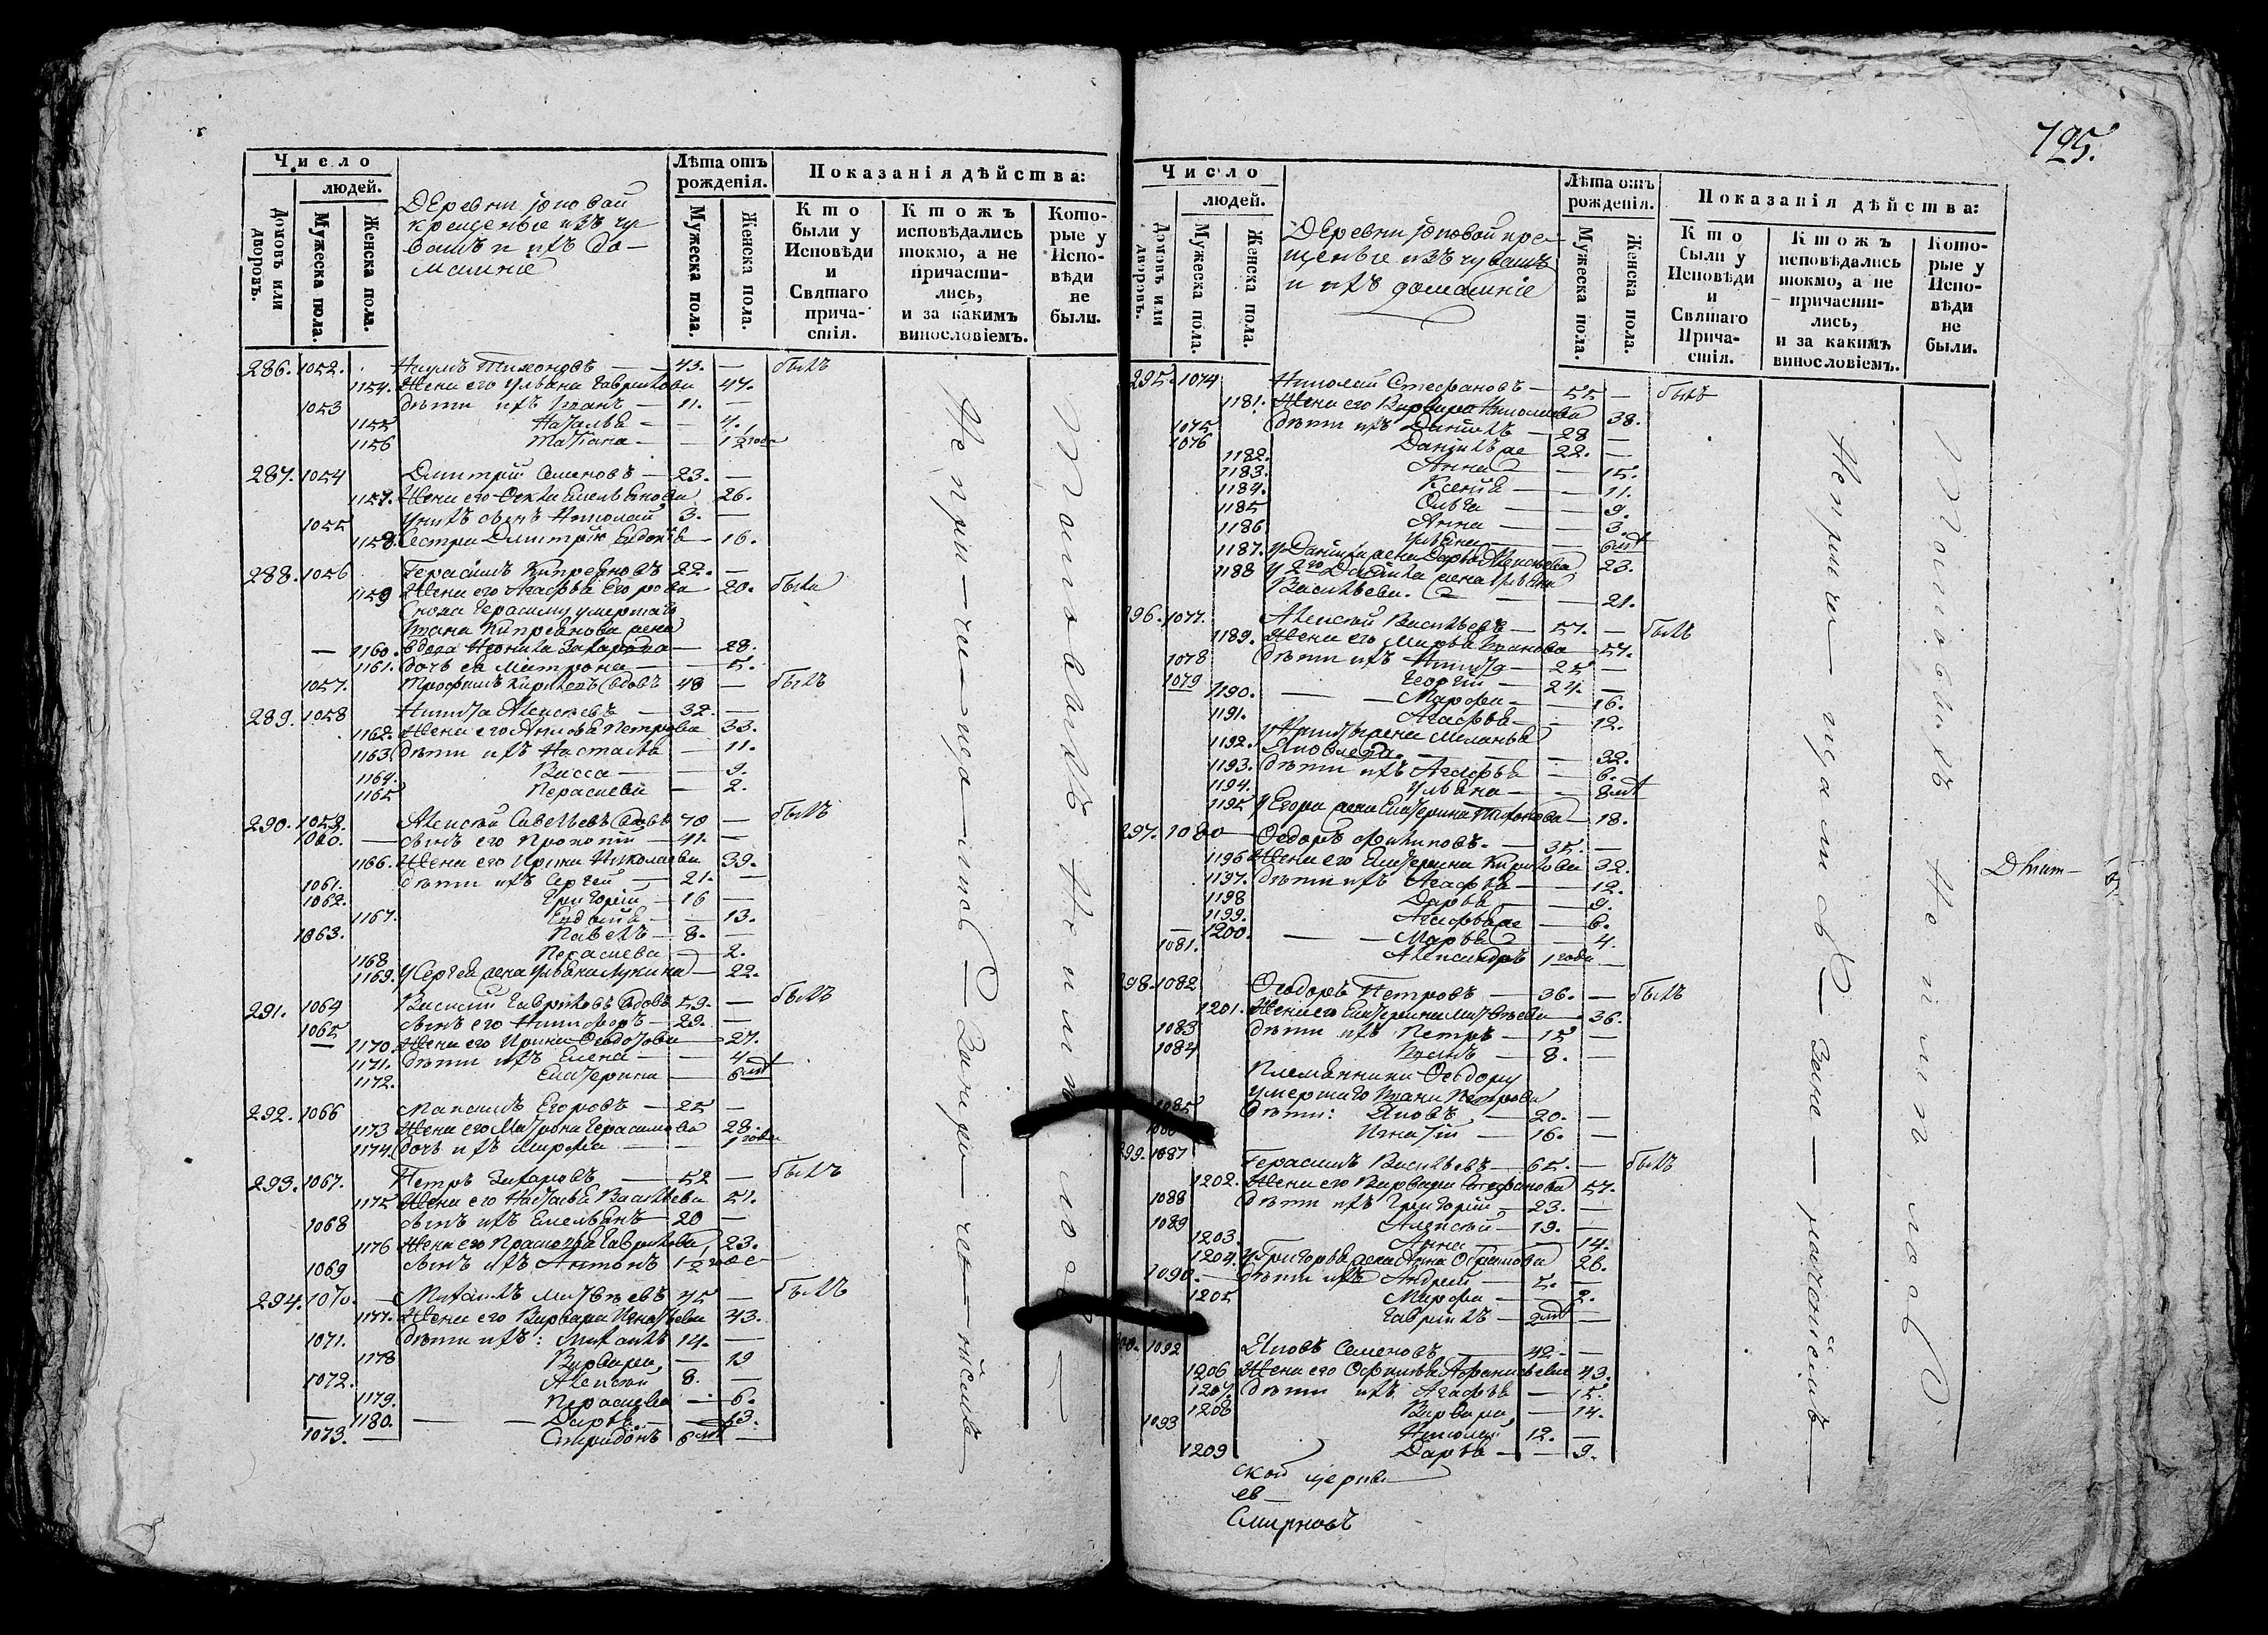 Число
людей.
Домовъ или дворовъ.
Мужеска пола.
Женска пола.
Деревни
крещеные изъ чу
вашъ и ихъ до-
машніе
Лѣта отъ рожденія.
Мужеска пола.
Женска пола.
Показанія дѣйства:
Кто были у Исповѣди и Святаго причастія.
Ктожъ исповѣдались токмо, а не причастились, и за какимъ винословіемъ.
Которые у Исповѣди не были.
286. 1052. Наумъ Тихоновъ — 43. — былъ
1154. Жена его Ульяна Гаврилова 47.
1053 дѣти ихъ Иванъ — 11. —
1155 Наталья — — 4.
1156 Татіана — — 1½ года
287. 1054 Димитрій Семеновъ — 23. —
1157. Жена его Фекла Емельянова 26.
1055 У нихъ сынъ Николай 3. —
1158. Сестра Димитрія Евдокія — 16.
288. 1056 Герасимъ Кипреяновъ 22. —
1159 Жена его Агафья Егорова 20. была
Сноха Герасиму умершаго
Ивана Кипреянова жена
— 1160. вдова Неонила Захарова — 28.
1161. дочь ея Матрона — — 5.
1057. Трофимъ Кириловъ вдовъ 48 — былъ
289. 1058 Никита Алексѣевъ — 32. —
1162. Жена его Анисья Петрова 33.
1163 дѣти ихъ Настасья — 11.
1164. Васса — — 9.
1165 Парасиева — 2.
290. 1059. Алексѣй Савельевъ вдовъ 70 — былъ
1060. — сынъ его Прокопій — 41. —
1166. Жена его Ирина Николаева 39.
1061. дѣти ихъ Сергѣй — 21. —
1062. Григорій — 16 —
1167. Евдокія — — 13.
1063. Павелъ — 8. —
1168 Парасиева — 2.
1169. У Сергѣя жена Ульяна Лукина — 22.
291. 1064 Василій Гавриловъ вдовъ 59. — былъ
1065 сынъ его Никифоръ — 29. —
— 1170. Жена его Ирина Ѳедотова — 27.
1171. дѣти ихъ Елена — — 4.
1172. Екатерина — 6 мѣ
292. 1066 Максимъ Егоровъ — 25 —
1173 Жена его Матрона Герасимова 28.
1174. дочь ихъ Марфа — — 1 года
293. 1067. Петръ Захаровъ — 52 — былъ
1175 Жена его Наталья Васильева 51.
1068 сынъ ихъ Емельянъ — 20 —
1176 Жена его Прасковья Гаврилова 23.
1069 сынъ ихъ Антонъ 1½ года —
294. 1070. — Михаилъ Матвѣевъ 45 — былъ
1177. Жена его Варвара Игнатьева 43.
1071. дѣти ихъ: Михаилъ 14. —
1178 Варвара, — 19
1072. Алексѣй 8. —
1179. Парасиева — 6.
1180. — — Дарья — — 3.
1073. — Спиридонъ 6 мѣ —
Не при-ча-ща-лись За
Таковыхъ не имѣлось
795.
Число
людей.
Домовъ или дворовъ.
Мужеска пола.
Женска пола.
Деревни кре-
щеные изъ чувашъ
и ихъ домашніе
Лѣта отъ рожденія.
Мужеска пола.
Женска пола.
Показанія дѣйства:
Кто были у Исповѣди и Святаго Причастія.
Ктожъ исповѣдались токмо, а не причастились, и за какимъ винословіемъ.
Которые у Исповѣди не были.
295. 1074 Николай Стефановъ — 55 — былъ
1181. Жена его Варвара Николаева 38.
1075 дѣти ихъ Даніилъ — 28 —
1076 Даніилъ же 22. —
1182. Анна — — 15.
1183. Ксенія — — 11.
1184. Ольга — — 9.
1185 Анна — — 3.
1186 Ульяна — — 6 мѣ
1187. У Даніила жена Дарья Алексѣева 23.
1188 У 2го Даніила жена Ульяна
Васильева. — — 21.
296. 1077. Алексѣй Васильевъ — 57. — былъ
1189. Жена его Марья Иванова — 57.
1078 дѣти ихъ Никита — 25 —
1079 Георгій — 24. —
1190. — — Марфа — — 16.
1191. Агафья — — 12.
У Никиты жена Меланья
1192. Яковлева. — — 32.
1193. дѣти ихъ Агафья — 6.
1194. Ульяна — — 8 мѣ
1195 У Егора жена Екатерина — 18.
297. 1080 — Ѳедоръ Филиповъ. — 35. —
1196 Жена его Екатерина Кирилова 32.
1197. дѣти ихъ Агафья — — 12.
1198 Дарья — — 9.
1199. Агафья же — 6.
— 1200. — — Марья — 4.
1081. Александръ 1 года —
298. 1082 Ѳеодоръ Петровъ — 36. — былъ
1201. Жена его Екатерина Матвѣева — 36.
1083 дѣти ихъ Петръ — 15 —
1084 — 8. —
Племянники Ѳедору
умершаго Ивана Петрова
1085 дѣти: Яковъ — 20. —
Игнатій — 16. —
299. 1087 Герасимъ Васильевъ — 65. — былъ
1202. Жена его Варвара Стефанова 57.
1088 дѣти ихъ Григорій — 23. —
1089 Алексѣй — 19. —
1203. Анна — — 14.
1204. У Григорья жена Анна 26.
1090. — дѣти ихъ Андрей — 5. —
1205 Марфа — — 2.
Гавріилъ — 2 мѣ —
300. 1092 Яковъ Семеновъ — 42. —
1206 Жена его Офимья Афанасьева 43.
1207. дѣти ихъ Агафья — 15.
1208 Варвара, — 14.
1093 Николай 12. —
1209 Дарья — — 9.
Непричащались — За не — раченіемъ
Таковыхъ не имѣлось
ской церкви
ев
Смирновъ